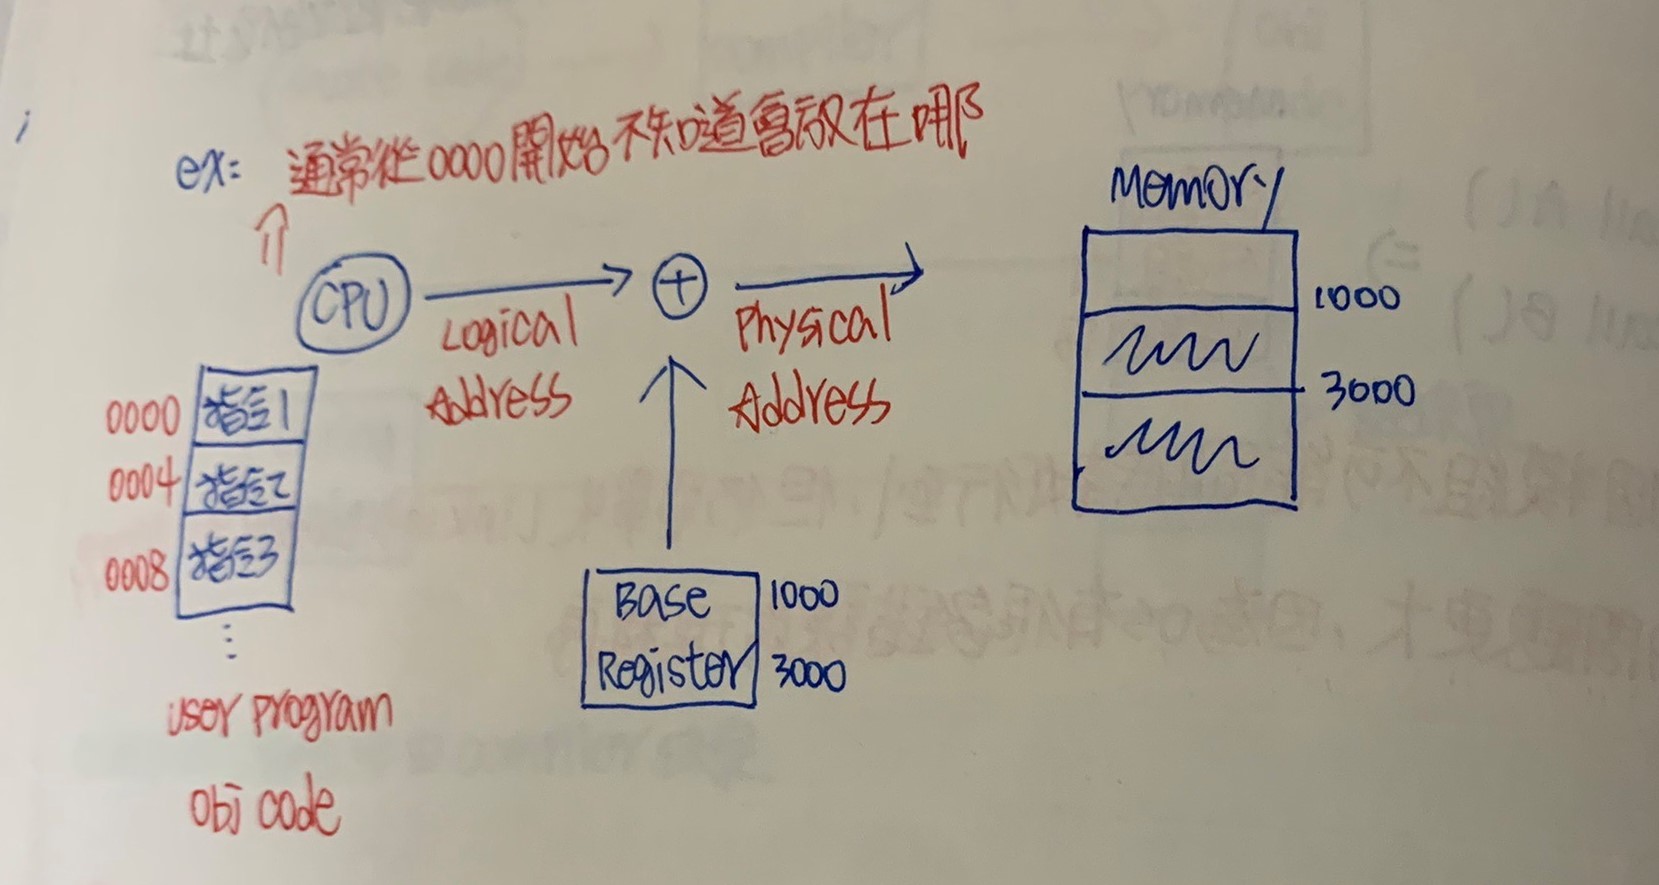 ex: 通常從0000開始不知道會放在哪
Memory
CPU
Logical
Address
+
Physical
Address
1000
3000
0000 指令1
0004 指令2
0008 指令3
⋮
user program
obj code
Base 1000
Register 3000